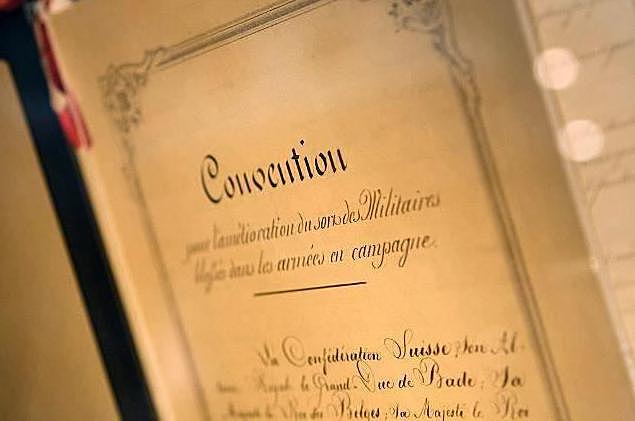 Convention
pour l'amélioration du sort des Militaires
blessés dans les armées en campagne.
La Confédération Suisse; Son Al-
Royale le Grand-Duc de Bade; Sa
Majesté le Roi des Belges; Sa Majesté le Roi